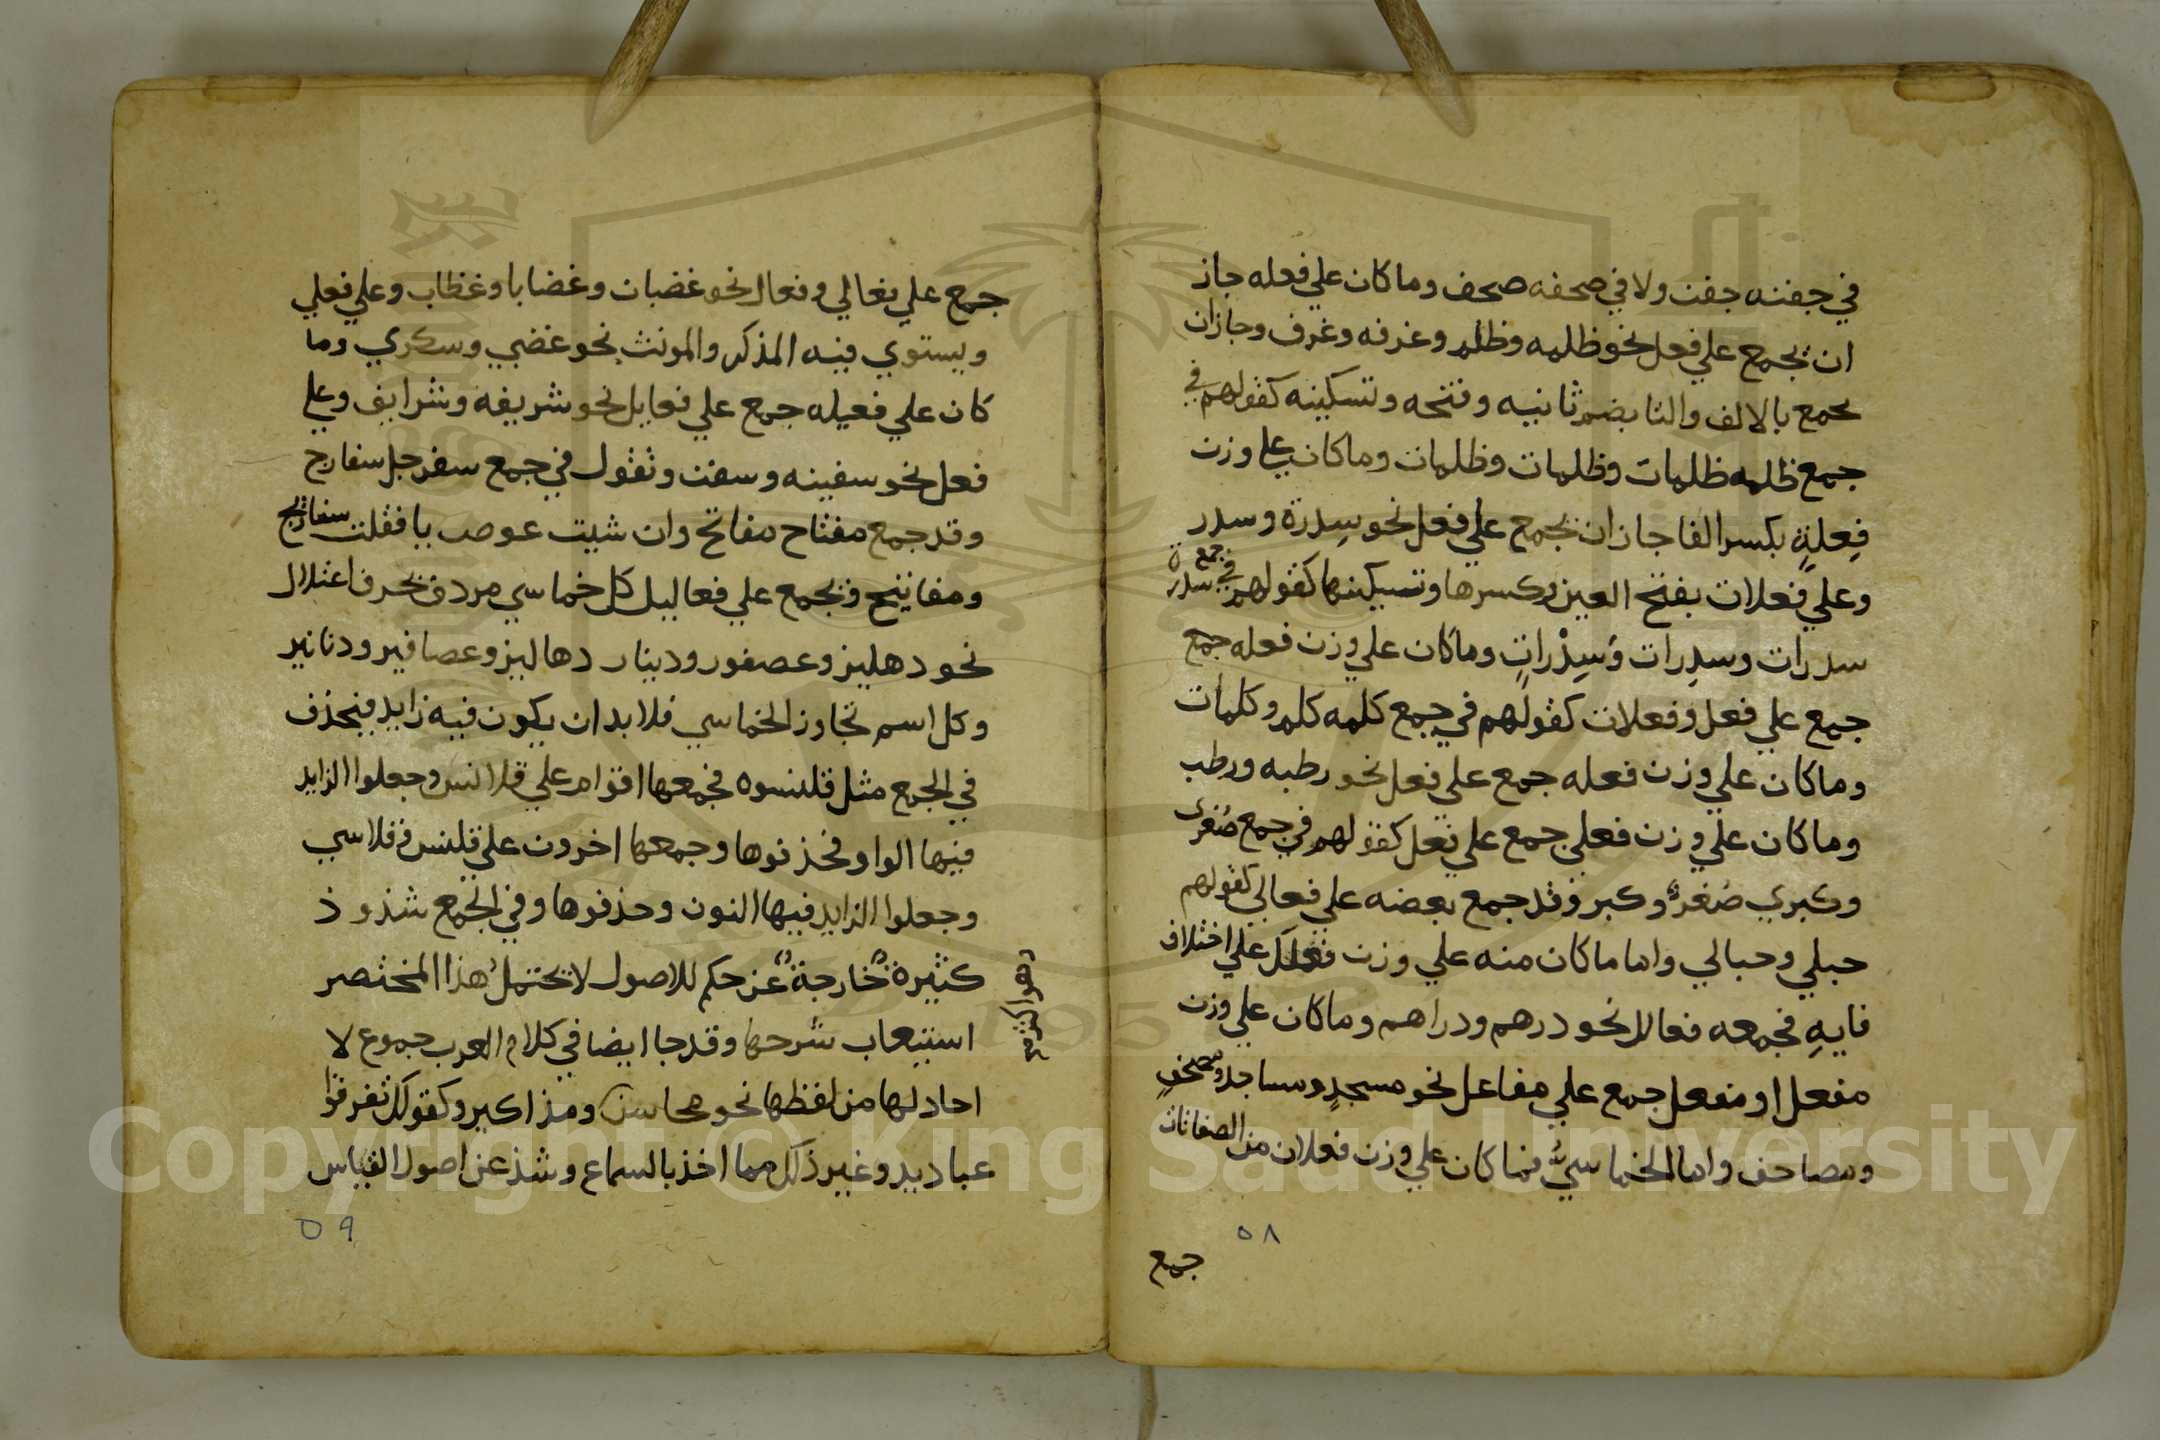 في جفنه جفن ولا في صحفه صحف وما كان علي فعله جاز
ان يجمع علي فعل نحو ظلمه وظلم وغرفه وغرف وجاز ان
يجمع بالالف والتا بضم ثانيه وفتحه وتسكينه كقولهم في
جمع ظلمه ظلمات وظلمات وظلمات وما كان علي وزن
فِعلةٍ بكسر الفا جاز ان يجمع علي فعل نحو سِدرة وسدر
وعلي فعلات بفتح العين وكسرها وتسكينها كقولهم في جمع سدرة
سدرات وسدِرات وَسِدْراتٍ وما كان علي وزن فعله جمع
جمع علي فعل وفعلات كقولهم في جمع كلمه كلم وكلمات
وما كان علي وزن فعله جمع علي فعل نحو رطبه ورطب
وما كان علي وزن فعلي جمع علي فعل كقولهم في جمع صُغرى
وكبري صُغر وكبر وقد جمع بعضه علي فعالي كقولهم
حبلي وحبالي واما ما كان منه علي وزن فعلل علي اختلاف
فايهِ فجمعه فعالل نحو درهم ودراهم وما كان علي وزن
مفعل او مفعل جمع علي مفاعل نحو مسجدٍ ومساجد ومصحفٍ
ومصاحف واما الخماسيُّ فما كان علي وزن فعلان من الصفات
جمع
٥٨
جمع علي فعالي وفعال نحو غضبان وغضابا وغظاب وعلي فعلي
ويستوي فيه المذكر والمونث نحو غضبي وسكري وما
كان علي فعيله جمع علي فعايل نحو شريفه وشرايف وعلي
فعل نحو سفينه وسفن وتقول في جمع سفرجل سفارج
وقد جمع مفتاح مفاتح وان شيت عوصت يا فقلت سفاريج
ومفاتيح ويجمع علي فعاليل كل خماسي مردف بحرف اعتلال
نحو دهليز وعصفور ودينار دهاليز وعصافير ودنانير
وكل اسم تجاوز الخماسي فلا بد ان يكون فيه زايد فيحذف
في الجمع مثل قلنسوه فجمعها اقوام علي قلانس وجعلوا الزايد
فيها الواو فحذفوها وجمعها اخرون علي قلنس وقلاسي
وجعلوا الزايد فيها النون وحذفوها وفي الجمع شذوذ
كثيرة خارجة عن حكم للاصول لا يحتمل هذا المختصر
استيعاب شرحها وقد جا ايضا في كلام العرب جموع لا
احاد لها من لفظها نحو محاسن ومذاكير وكقولك تفرقوا
عباديد وغير ذلك مما اخذ بالسماع وشذ عن اصول القياس
٥٩
Copyright © King Saud University